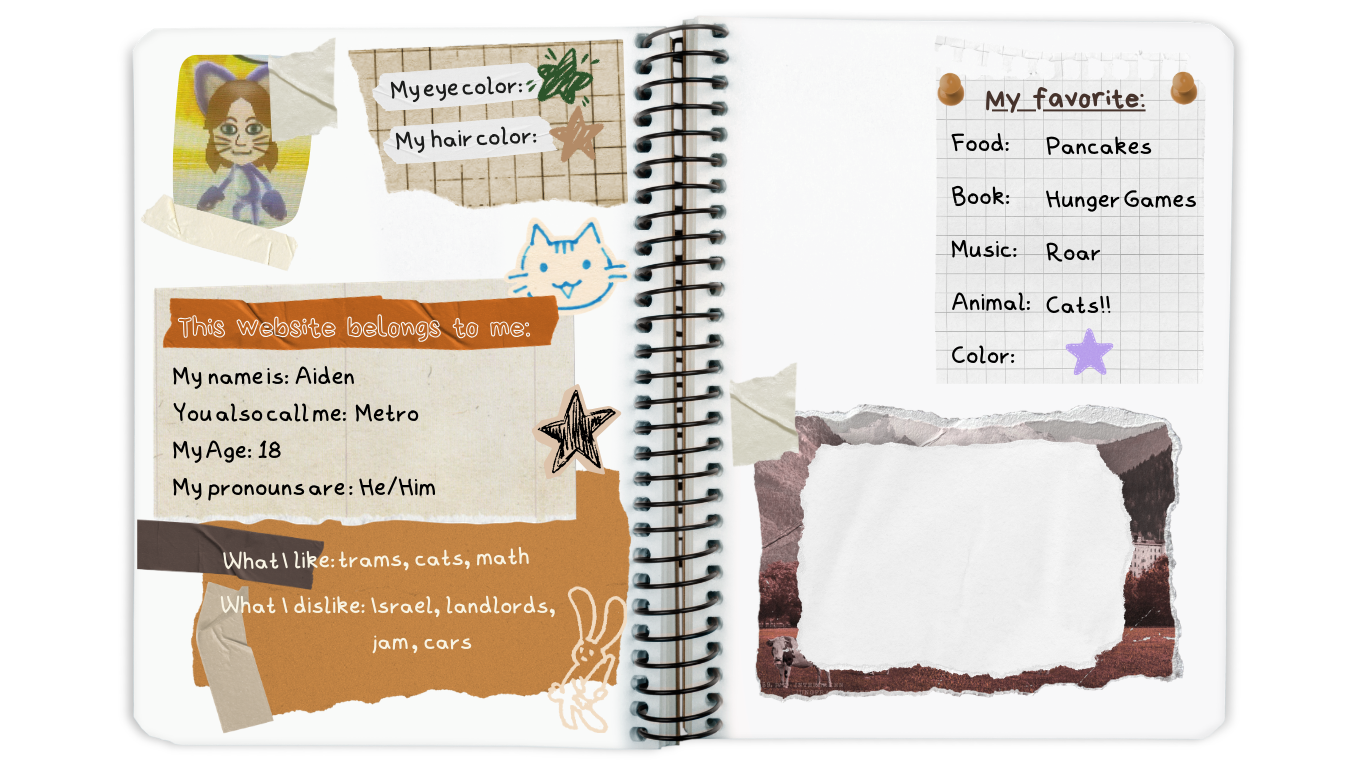 My eye color:
My hair color:
This website belongs to me:
My name is: Aiden
You also call me: Metro
My Age: 18
My pronouns are: He/Him
What I like: trams, cats, math
What I dislike: Israel, landlords,
jam, cars
My favorite:
Food: Pancakes
Book: Hunger Games
Music: Roar
Animal: Cats!!
Color: